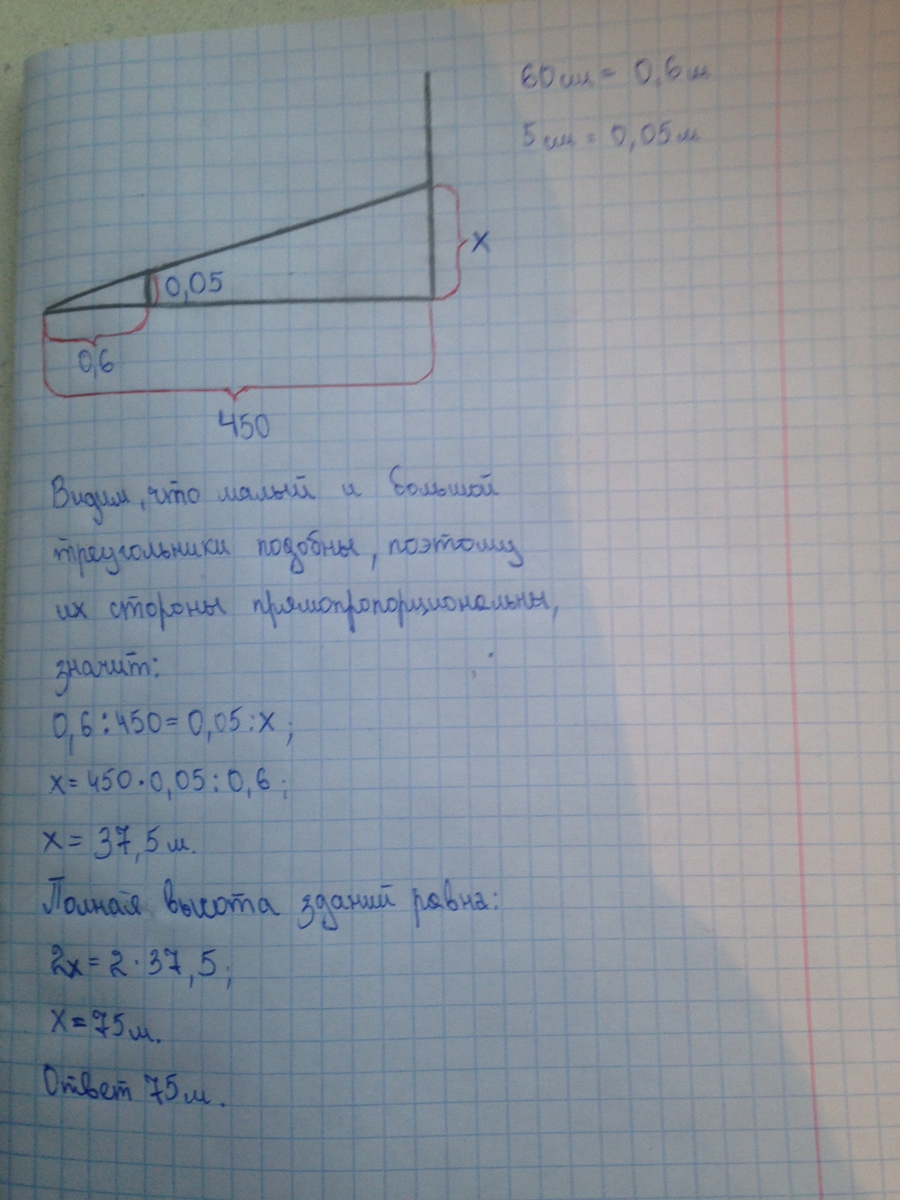 60 см = 0,6 м
5 см = 0,05 м
x
0,05
0,6
450
Видим, что малый и большой
треугольники подобны, поэтому
их стороны прямопропорциональны,
значит:
0,6:450=0,05:x;
x=450·0,05:0,6;
x= 37,5 м.
Полная высота зданий равна:
2x=2·37,5;
x=75м.
Ответ 75м.